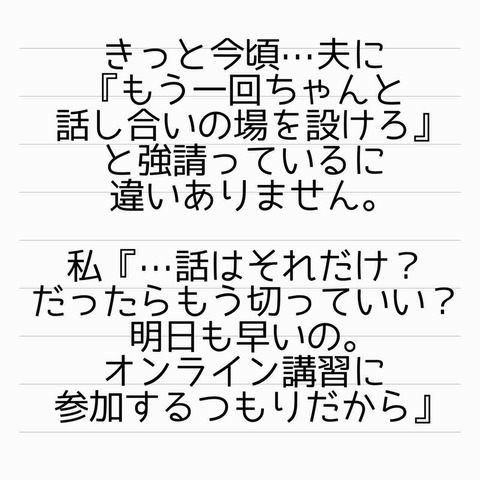 きっと今頃…夫に
『もう一回ちゃんと
話し合いの場を設けろ』
と強請っているに
違いありません。
私『…話はそれだけ？
だったらもう切っていい？
明日も早いの。
オンライン講習に
参加するつもりだから』